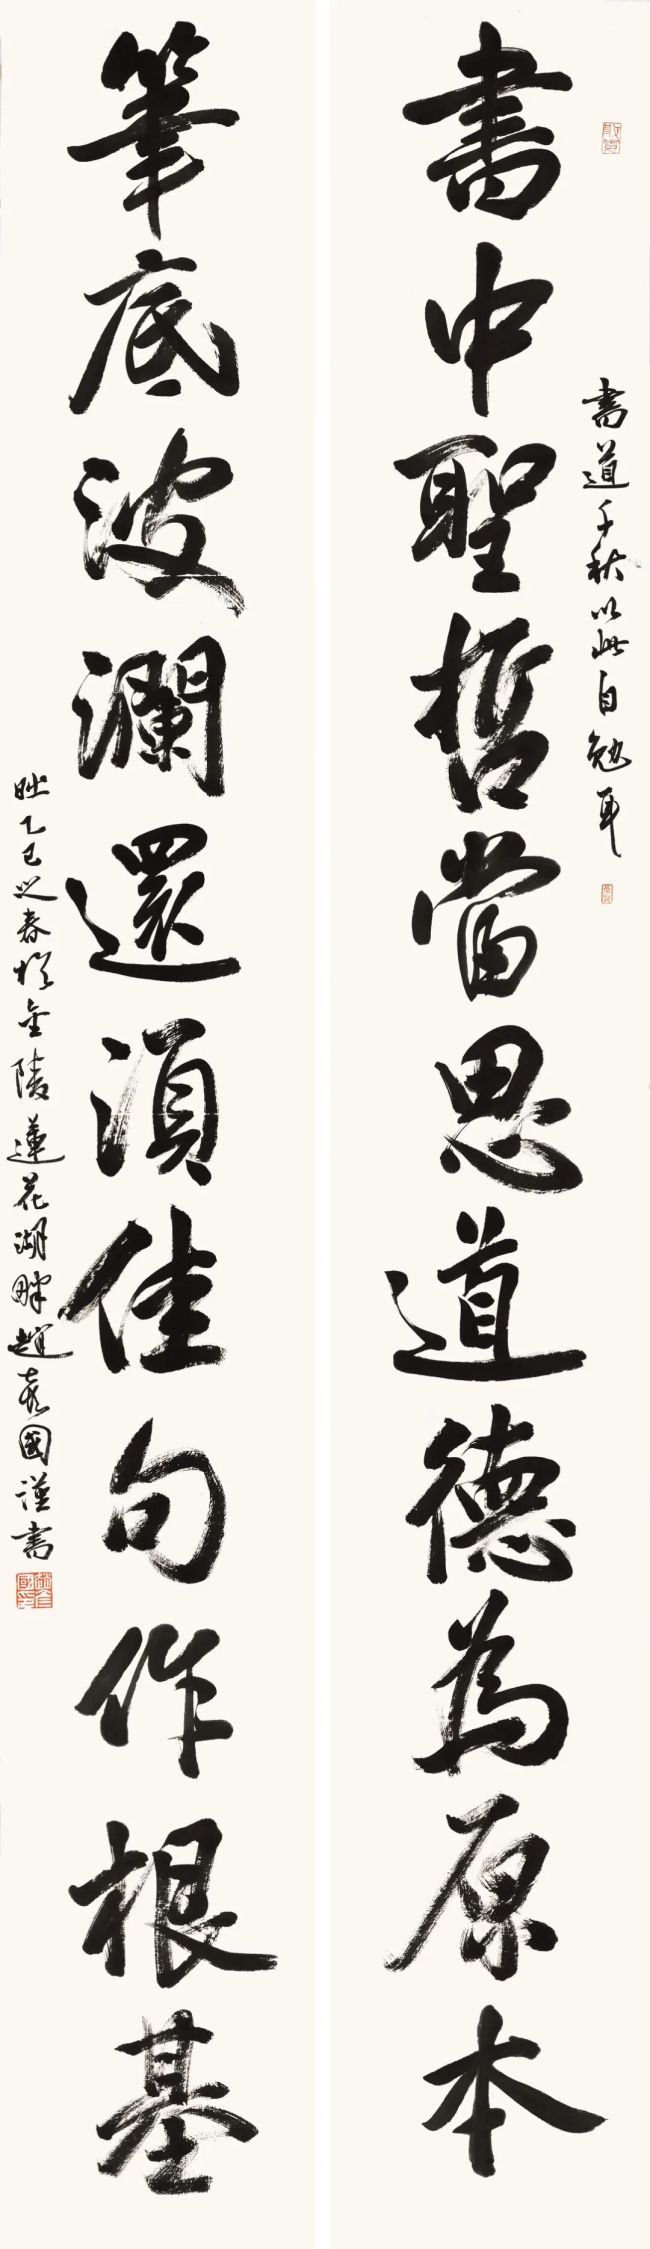 書道千秋以此自勉耳
書中聖哲當思道德為原本
筆底波瀾還須佳句作根基
時乙巳之春於金陵蓮花湖畔趙彥國謹書